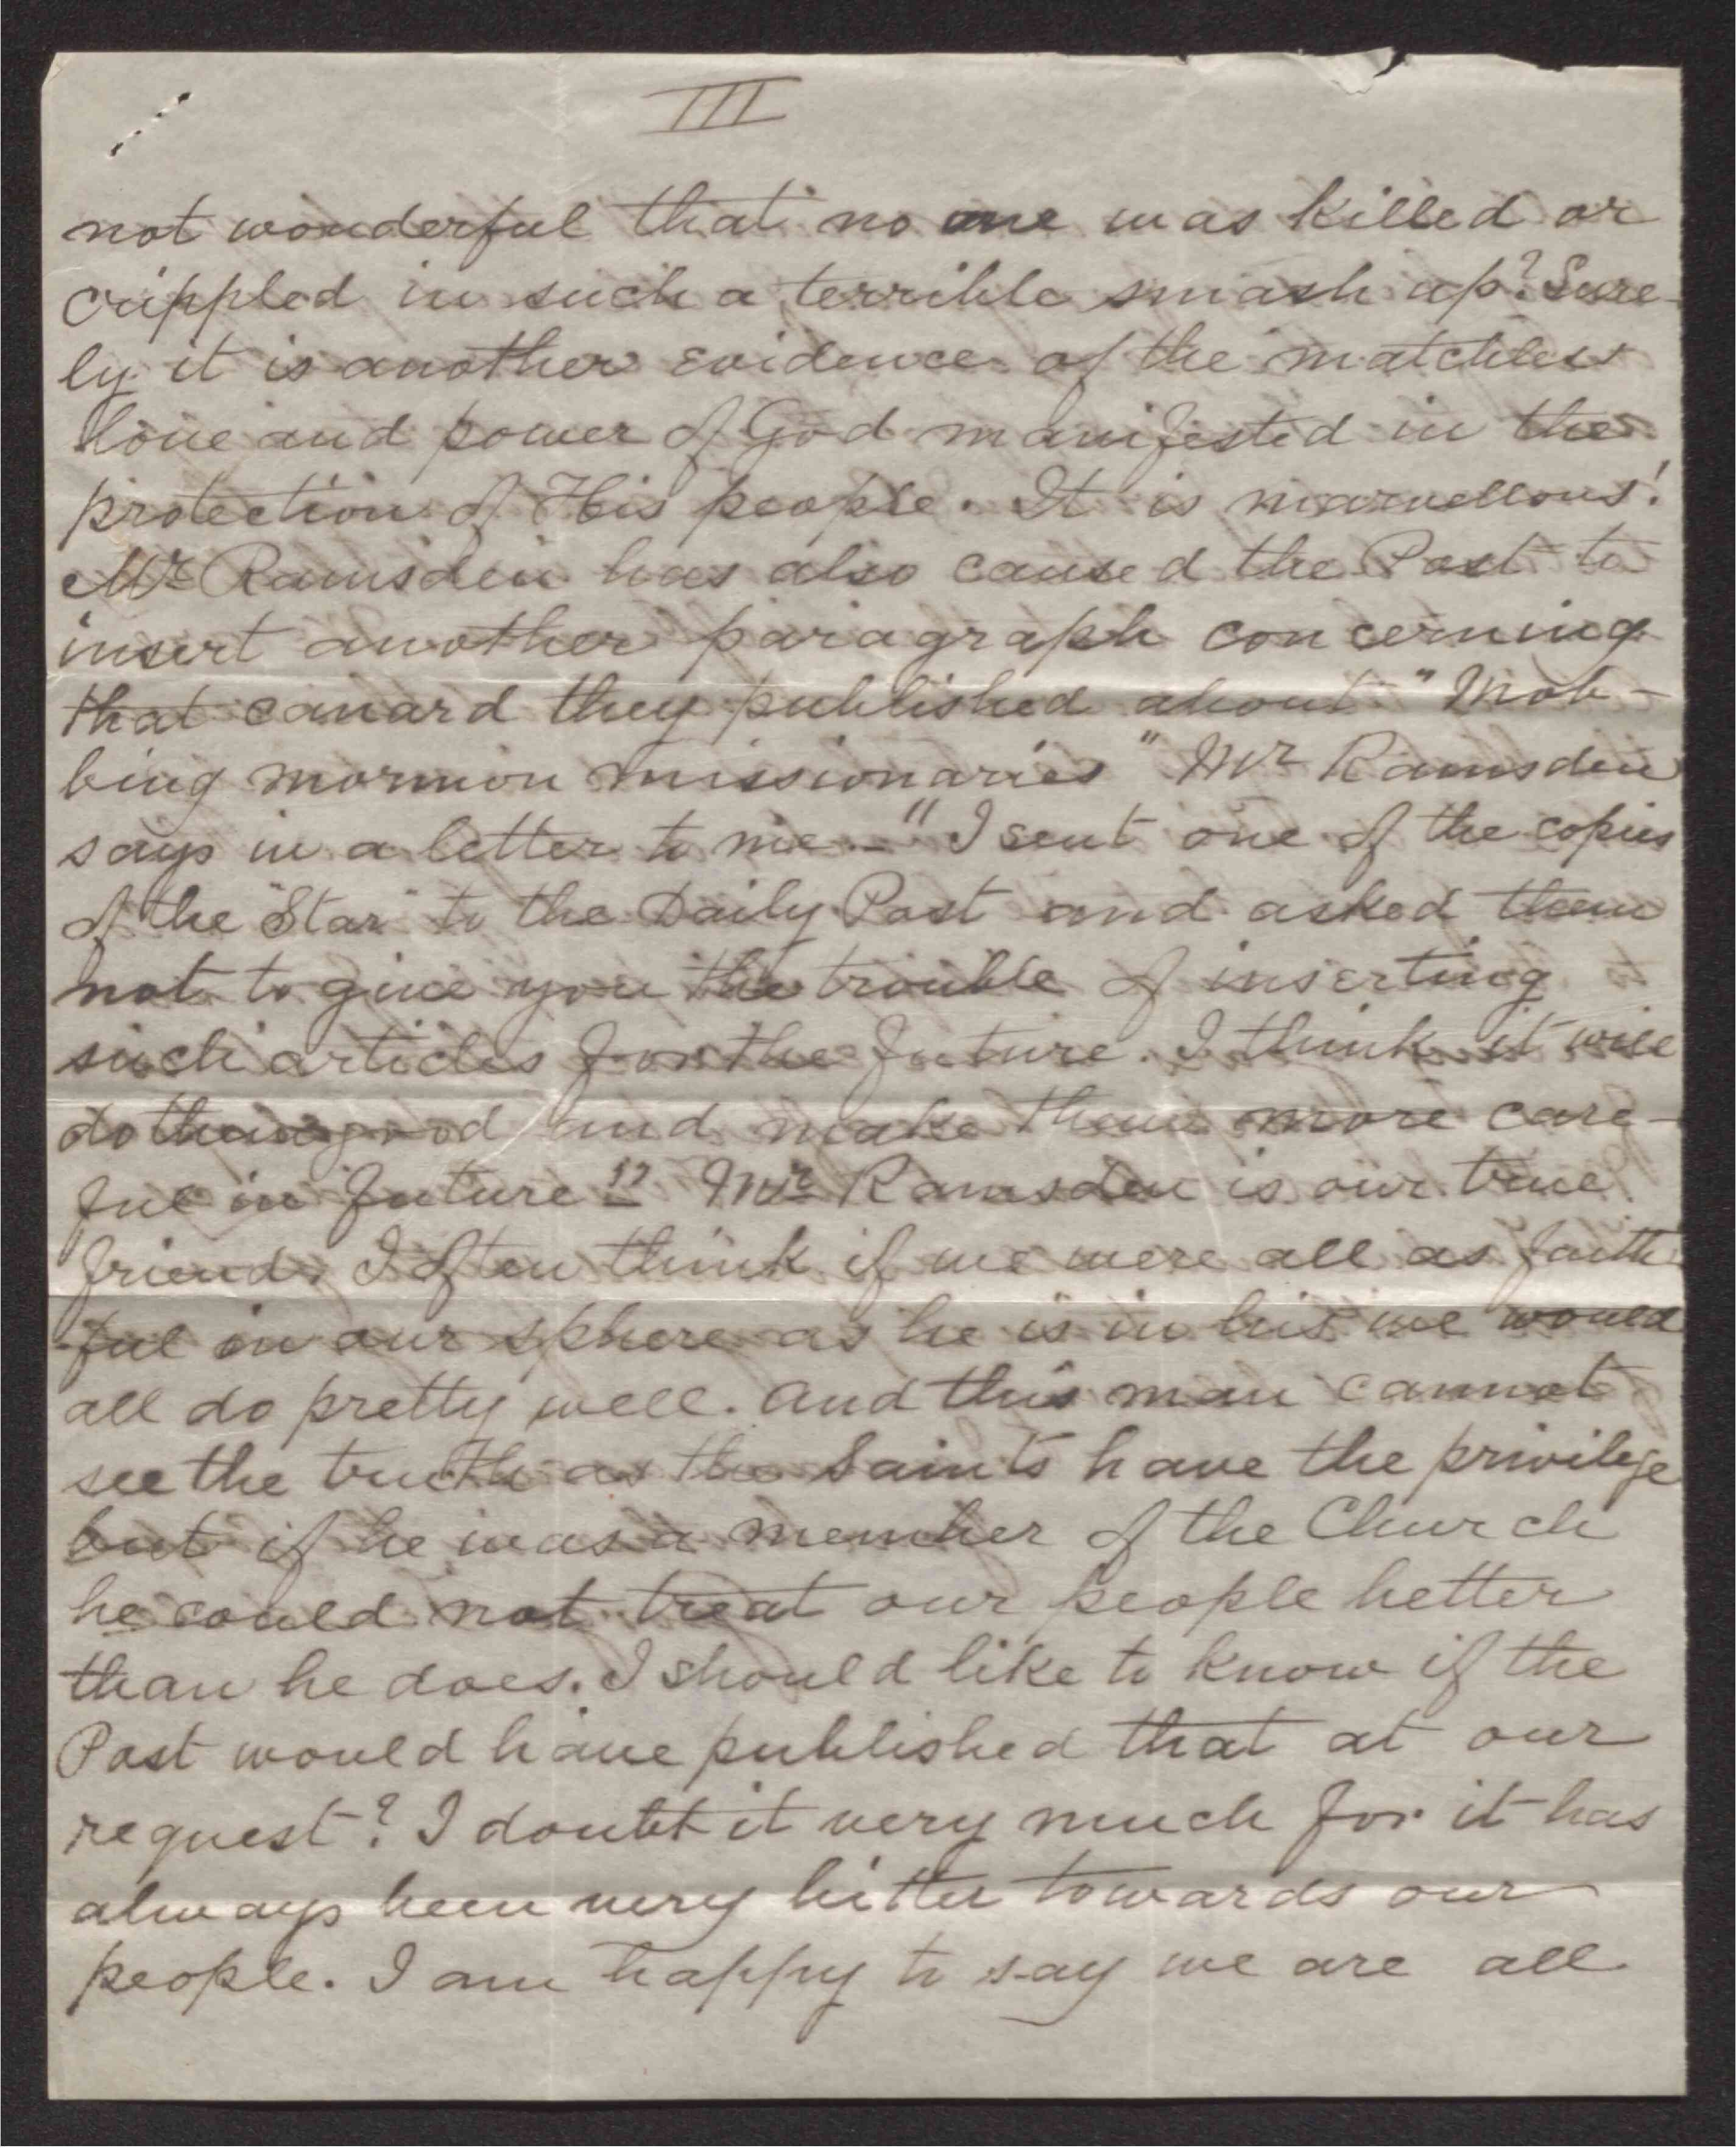 III
not wonderful that no one was killed or
crippled in such a terrible smash up? Sure-
ly it is another evidence of the matchless
love and power of God manifested in the
protection of His people. It is marvellous!
Mr Ramsden has also caused the Post to
insert another paragraph concerning
that canard they published about "Mob-
bing mormon missionaries" Mr Ramsden
says in a letter to me - "I sent one of the copies
of the "Star" to the Daily Post and asked them
not to give you the trouble of inserting
such articles for the future. I think it will
do them good and make them more care-
ful in future" Mr Ramsden is our true
friend, I often think if we were all as faith
ful in our sphere as he is in his we would
all do pretty well. And this man cannot
see the truth as the Saints have the privilege
but if he was a member of the Church
he could not treat our people better
than he does. I should like to know if the
Post would have published that at our
request? I doubt it very much for it has
always been very bitter towards our
people. I am happy to say we are all